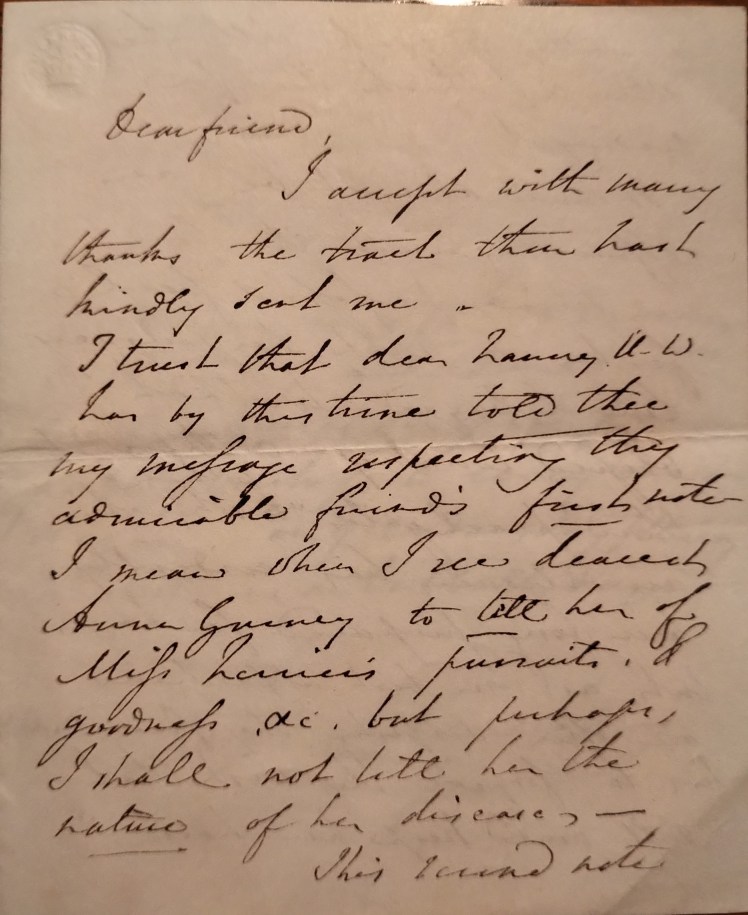 Dear friend,
I accept with many
thanks the tract thou hast
kindly sent me.
I trust that dear U. W.
has by this time told thee
my message respecting thy
admirable friend's first note
I mean when I see dearest
Anna Gurney to tell her of
Miss pursuits, &
goodness &c. but perhaps,
I shall not tell her the
nature of her disease, —
This second note